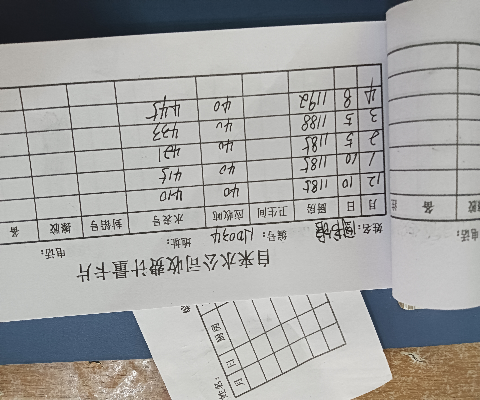 自来水公司收费计量卡片
姓名： 编号： 地址： 电话：
月 日 厨房 卫生间 应收吨 水表号 封铅号 备
12 10 1185 40 410
1 10 1185 40 415
2 5 1185 40 421
3 5 1188 40 433
4 8 1192 40 445
电话：
备
姓名：
月 日 厨房